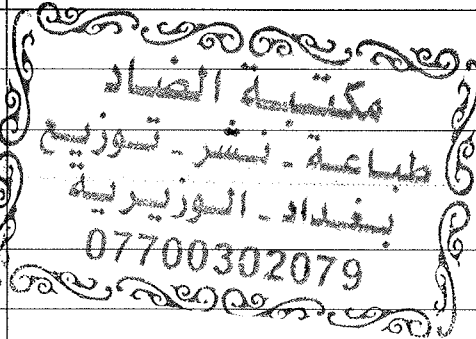 مكتبة الضاد
طباعة - نشر - توزيع
بغداد - الوزيرية
07700302079